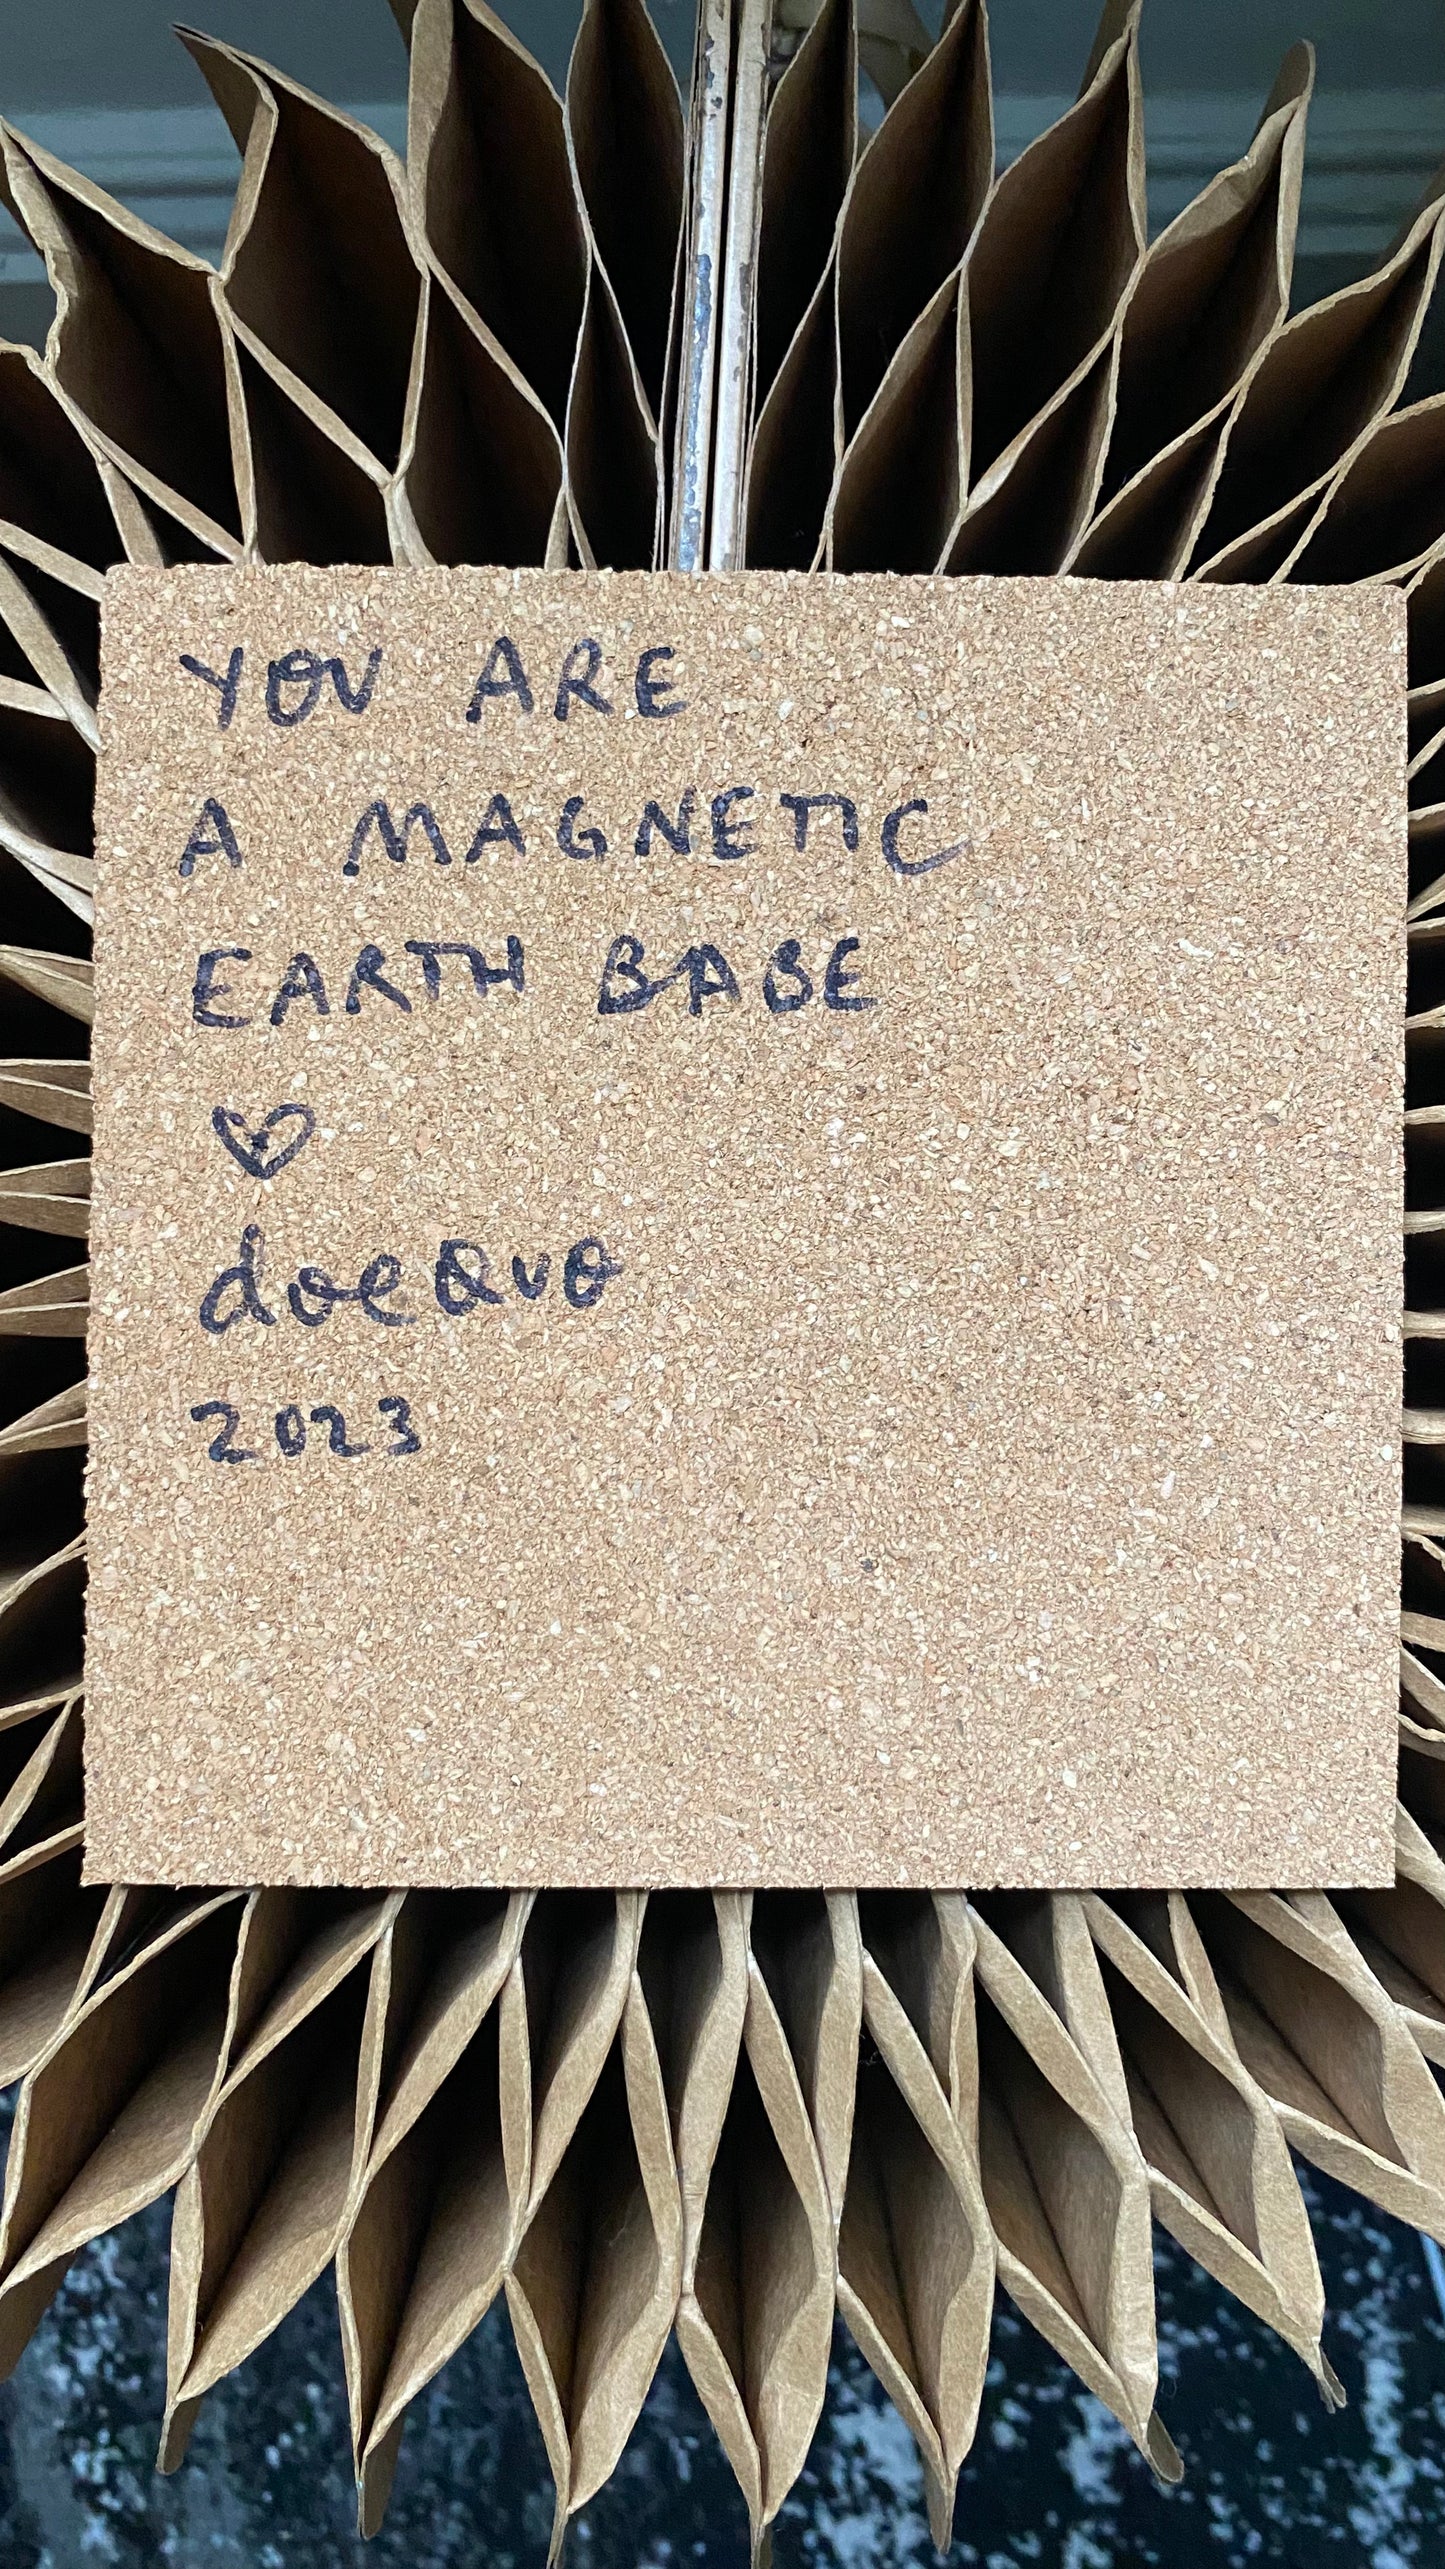 YOU ARE
A MAGNETIC
EARTH BABE
♡
doequo
2023